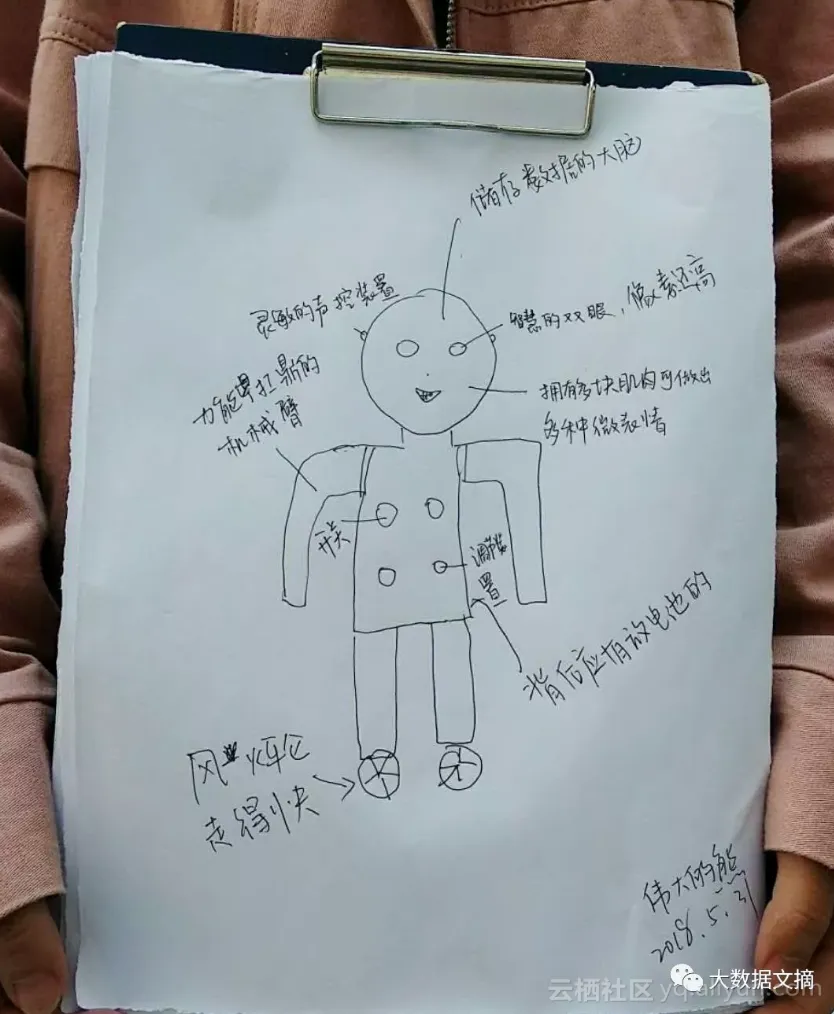 储存数据的大脑
灵敏的声控装置
智慧的双眼，像素还高
力能扛鼎的
机械臂
拥有多块肌肉可做出
多种微表情
开关
调节装
置
背后应有放电池的
风火轮
走得快
伟大的熊
2018.5.31
大数据文摘
云栖社区 yq.aliyun.com